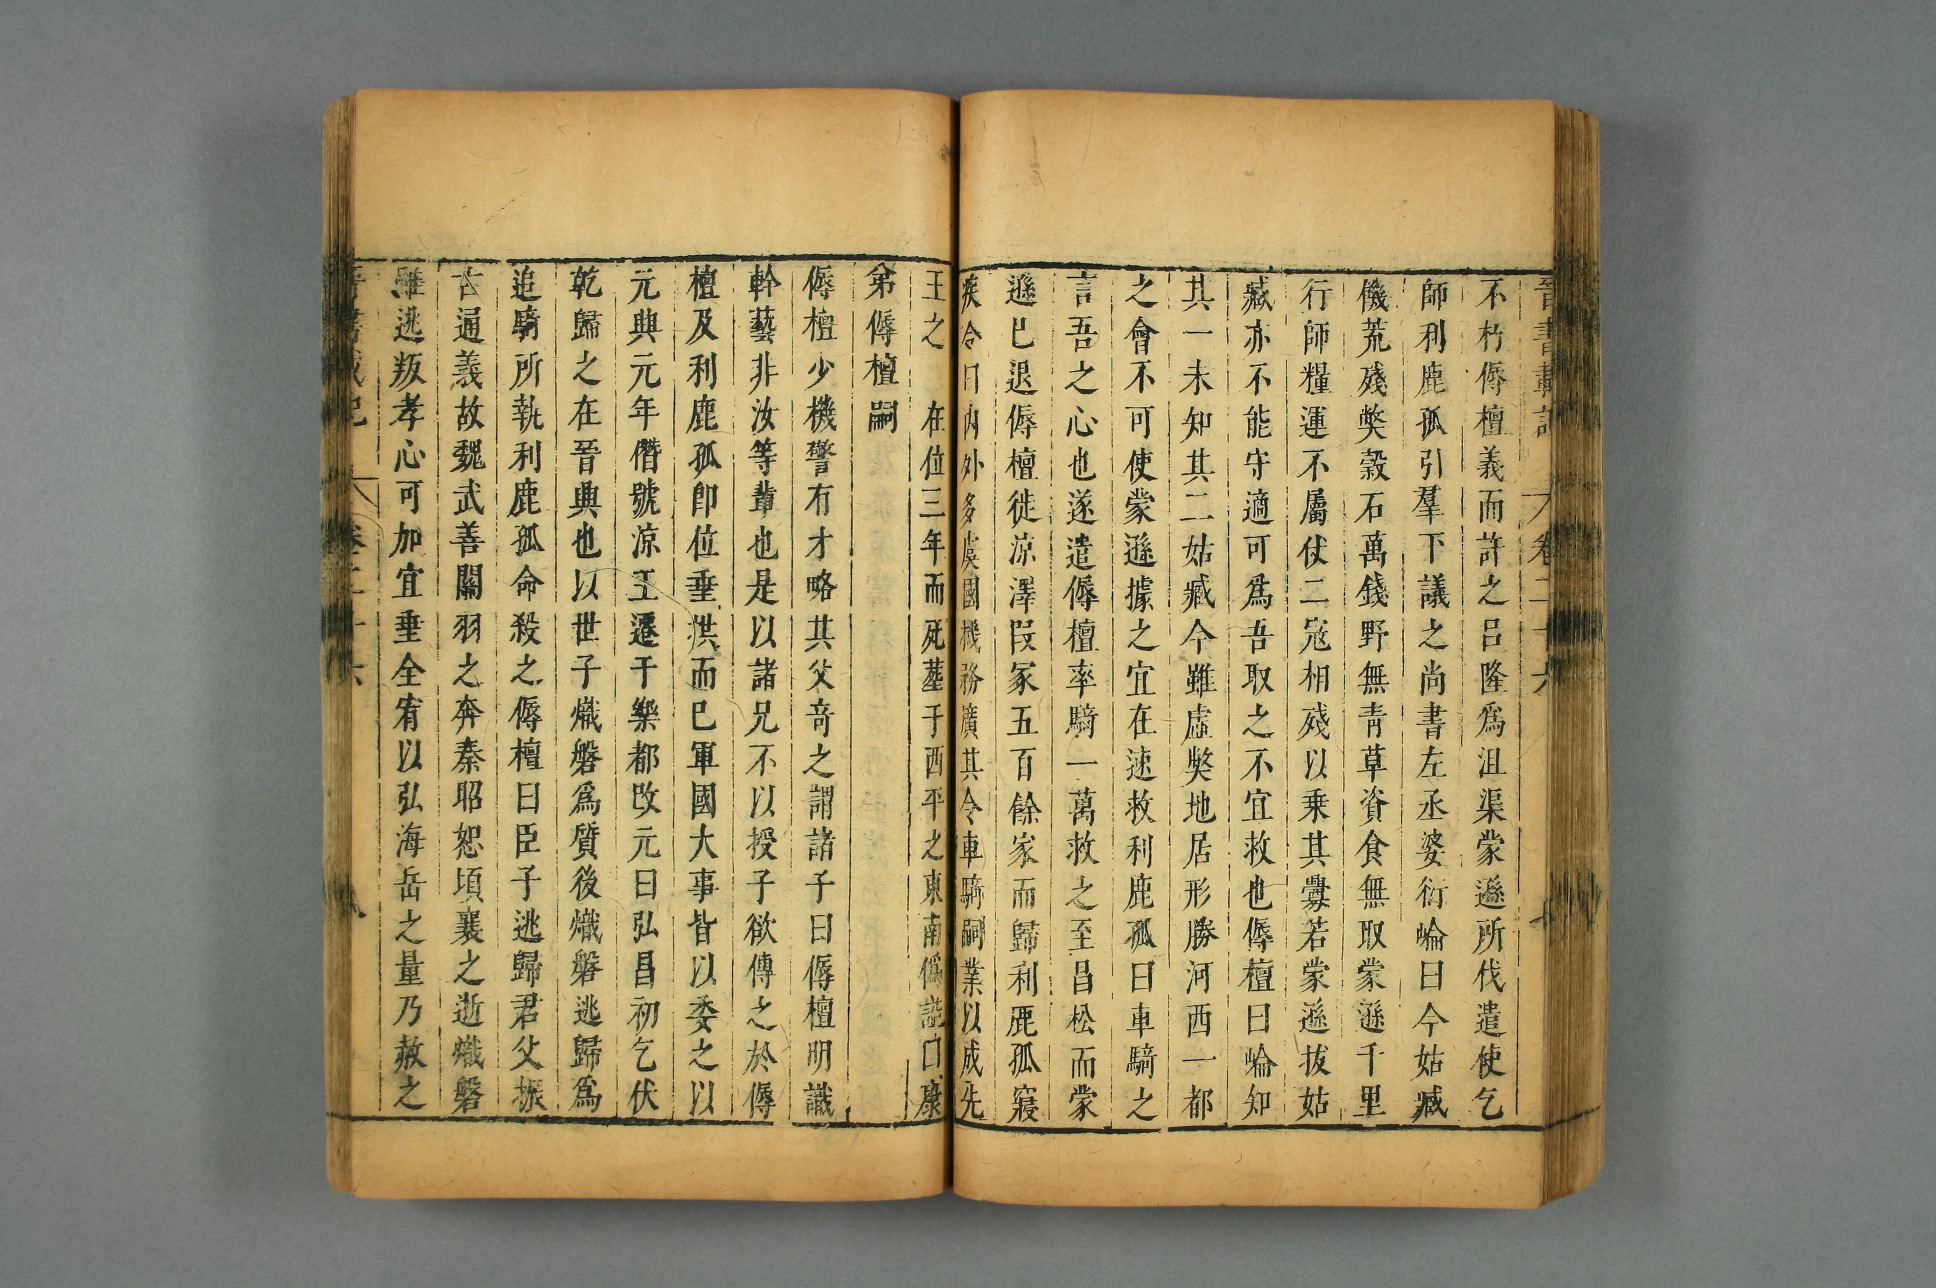 晉書載記 卷二十六 七
不朽傉檀義而許之呂隆爲沮渠蒙遜所伐遣使乞
師利鹿孤引羣下議之尚書左丞婆衍崘曰今姑臧
饑荒殘獘穀石萬錢野無青草資食無取蒙遜千里
行師糧運不屬使二宼相殘以乗其釁若蒙遜拔姑
臧亦不能守適可爲吾取之不宜救也傉檀曰崘知
其一未知其二姑臧今雖虛獘地居形勝河西一都
之會不可使蒙遜據之宜在速救利鹿孤曰車騎之
言吾之心也遂遣傉檀率騎一萬救之至昌松而蒙
遜巳退傉檀徙涼澤段冢五百餘家而歸利鹿孤寢
疾令曰内外多虞國機務廣其令車騎嗣業以成先
王之 在位三年而死葬于西平之東南僞諡曰康
弟傉檀嗣
傉檀少機警有才略其父奇之謂諸子曰傉檀明識
幹藝非汝等輩也是以諸兄不以授子欲傳之於傉
檀及利鹿孤即位垂拱而巳軍國大事皆以委之以
元興元年僭號涼王遷于樂都改元曰弘昌初乞伏
乾歸之在晉興也以世子熾磐爲質後熾磐逃歸爲
追騎所執利鹿孤命殺之傉檀曰臣子逃歸君父振
古通義故魏武善關羽之奔秦昭恕頃襄之逝熾磐
雖逃叛孝心可加宜垂全宥以弘海岳之量乃赦之
晉書載記 卷二十六 八